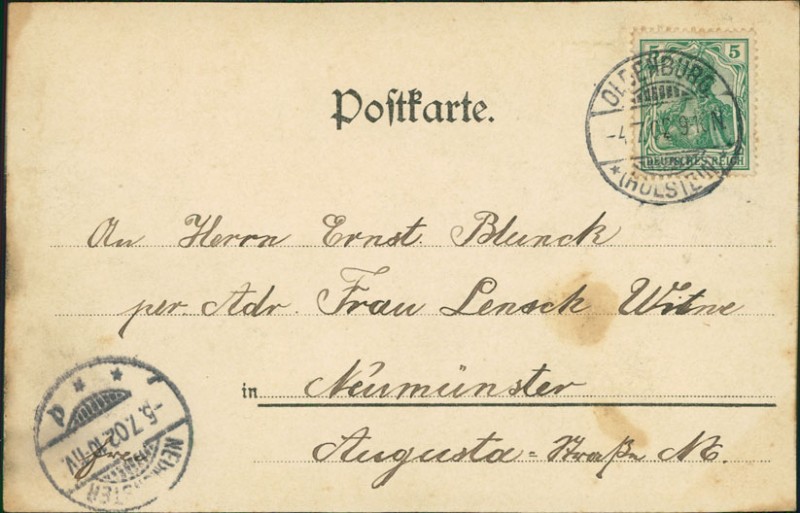 Postkarte.
5 5
DEUTSCHES REICH
OLDENBURG
-4.7.02 9-10N
*(HOLSTEIN)*
An Herrn Ernst. Blunck
per. Adr. Frau Lensch Witwe
in Neumünster
Augusta=Straße No.
* *
-5.7.02.10-11V.
NEUMÜNSTER